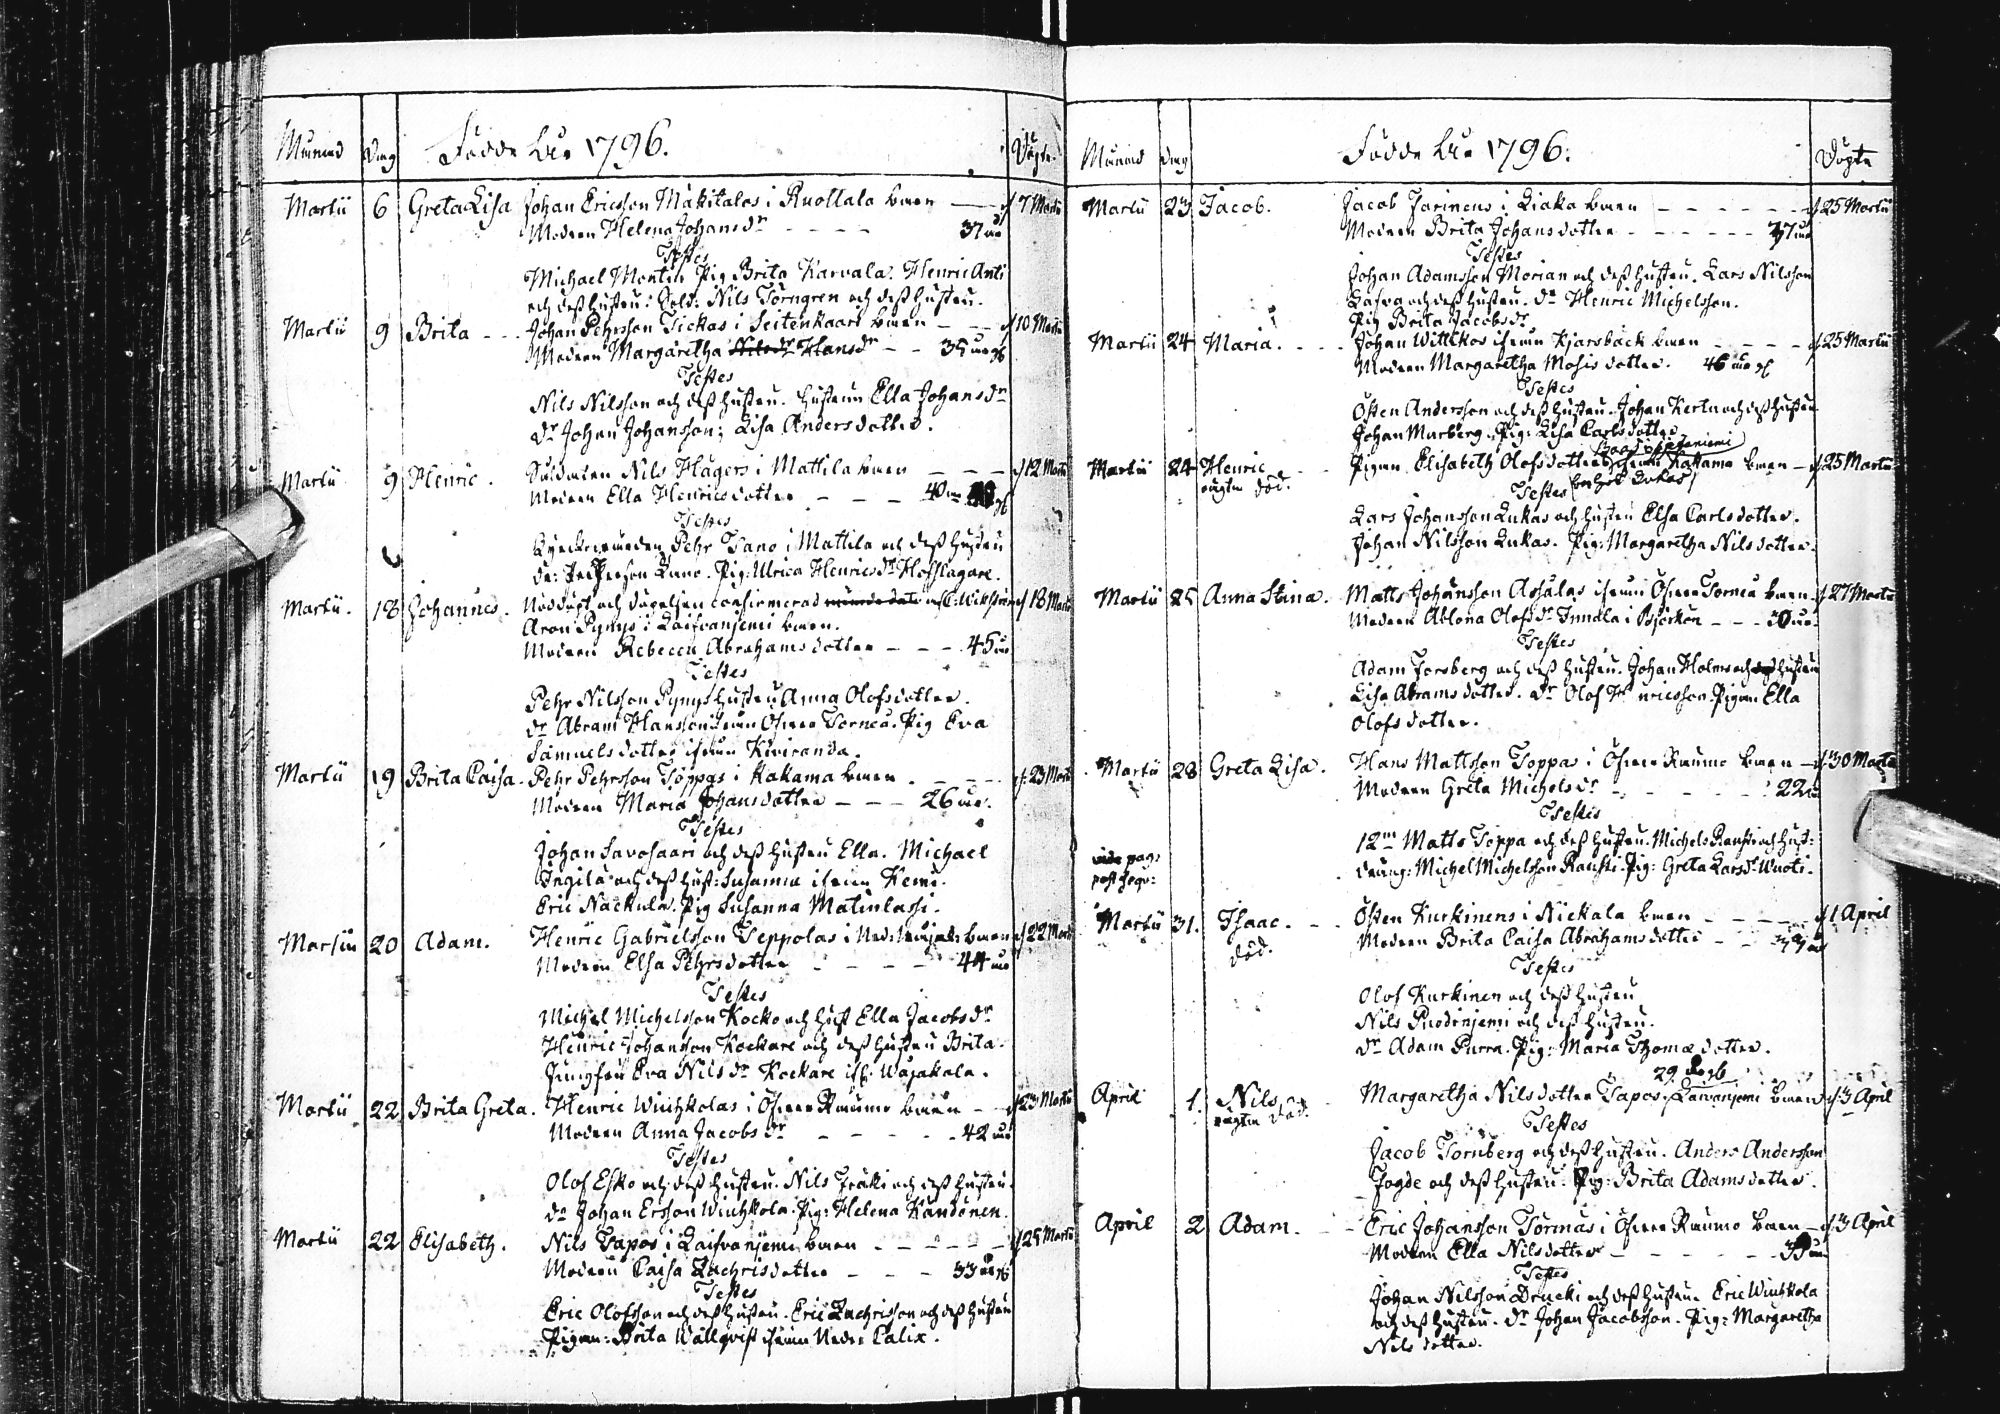 Månad Dag Födde Åhr 1796. Döpte
Martii 6 Greta Lisa Johan Ericsson Mäkitalos i Ruottala barn 7 Martii
Modren Helena Johansdr 37 år
Testes
Michael Martin Pig Brita Karvala. Henric Anti
och dess hustru. Sold: Nils Törngren och dess hustru.
Martii 9 Brita Johan Pehrsson Tickas i Seitenkaari barn 10 Martii
Modren Margaretha Nilsdr Hansdr 35 år
Testes
Nils Nilsson och dess hustru. hustrun Ella Johansdr
dr Johan Johansson; Lisa Andersdotter.
Martii 9 Henric. Soldaten Nils Hägers i Mattila barn 12 Martii
Modren Ella Henricsdotter 40 år
Testes
Kyrckowärden Pehr Tano i Mattila och dess hustru
Pig: Ulrica Henricsdr
Martii. 18 Johannes. Nöddöpt och döpelsen confirmerad Wickström 18 Martii
Aron Pynys i Laifvanjemi barn.
Modren Rebecca Abrahamsdotter 45 år
Testes
Pehr Nilsson Pynys hustru Anna Olofsdotter.
dr Abram Hansson ifrån Öfver Torneå. Pig Eva
Samuelsdotter ifrån Kiviranda.
Martii 19 Brita Caisa. Pehr Pehrsson Toppas i Kakama barn. 23 Martii
Modren Maria Johansdotter 26 år.
Testes
Johan Savosaari och dess hustru Ella. Michael
Ingilä och dess hust: Susanna ifrån Kemi.
Eric Nackula. Pig Susanna Matinlassi.
Martii 20 Adam. Henric Gabrielsson Seppolas i Ned: barn 22 Martii
Modren Elsa Pehrsdotter 44 år
Testes
Michel Michelsson Kocko och hust Ella Jacobsdr
Henric Johansson Kockare och dess hustru Brita.
Jungfru Eva Nilsdr Kockare Wojakala.
Martii 22 Brita Greta. Henric Wiuhkolas i Öfver Raumo barn 23 Martii
Modren Anna Jacobsdr 42 år
Testes
Olof Esko och dess hustru. Nils och dess hustru.
dr Johan Ersson Wiuhkola. Pig: Helena Kandonen.
Martii 22 Elisabeth. Nils Tapos i Laifvanjemi barn 25 Martii
Modren Caisa Zachrisdotter 33 år
Testes
Eric Olofsson och dess hustru. Eric Zachrisson och dess hustru
Pigan: Brita Wällqvist ifrån Neder Calix.
Månad Dag Födde Åhr 1796. Döpte
Martii 23 Jacob. Jacob Jarinens i Liaka barn 25 Martii
Modren Brita Johansdotter 37 år
Testes
Johan Adamsson Morian och dess hustru. Lars Nilsson
och dess hustru. dr Henric Michelsson.
Pig Brita Jacobsdr
Martii 24 Maria. Johan Wittikos ifrån Kjärsbäck barn 25 Martii
Modren Margaretha Mosisdotter. 46 år
Testes
Östen Andersson och dess hustru. Johan Kertu och dess hustru
Johan Murberg. Pig: Lisa Carlsdotter
Martii 24 Henric Pigan Elisabeth Olofsdotters Kakama barn 25 Martii
oägta död.
Testes
Lars Johansson Lukas och hustru Elsa Carlsdotter.
Johan Nilsson Lukas. Pig: Margaretha Nilsdotter.
Martii 25 Anna Stina. Matts Johansson Assalas ifrån Öfver Torneå barn 27 Martii
Modren Ablona Olofsdr Innala i Björkön 30 år.
Testes
Adam Forsberg och dess hustru. Johan Holms och dess hustru
Lisa Abramsdotter. dr Olof Henricsson. Pigan Ella
Olofsdotter.
Martii 28 Greta Lisa. Hans Mattsson Toppas i Öfver Raumo barn 30 Martii
Modren Greta Michelsdr 22 år
Testes
12mn Matts Toppa och dess hustru. Michels Rauski och hust:
dräng: Michel Michelsson Rauski. Pig: Greta Larsdr Wuoti.
vide pag:
post sequ:
Martii 31. Isaac. Östen Kurkinens i Nickala barn 1 April
död. Modren Brita Caisa Abrahamsdotter 33 år
Testes
Olof Kurkinen och dess hustru
Nils Puodinjemi och dess hustru.
dr Adam Purra. Pig: Maria Thomædotter.
29 år
April 1. Nils Margaretha Nilsdotter Tapos, Laivanjemi barn 3 April
oägta död.
Testes
Jacob Tornberg och dess hustru. Anders Andersson
Fogde och dess hustru. Pig: Brita Adamsdotter.
April 2 Adam. Eric Johansson Törmäs i Öfver Raumo barn 3 April
Modren Ella Nilsdotter 35 år
Testes
Johan Nilsson Drucki och dess hustru. Eric Wiuhkola
och dess hustru. dr Johan Jacobsson. Pig: Margaretha
Nilsdotter.